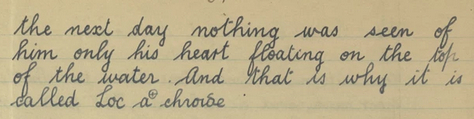 the next day nothing was seen of
him only his heart floating on the top
of the water. And that is why it is
called Loc a chroide